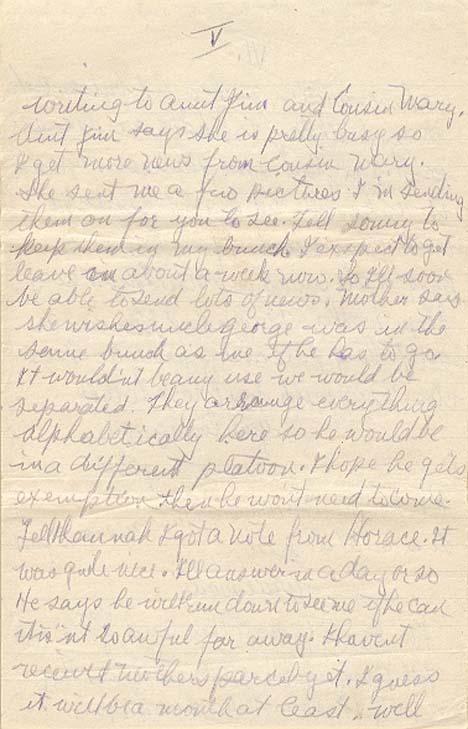 V
writing to Aunt Jim and Cousin Mary.
Aunt Jim says she is pretty busy so
I get more news from Cousin Mary.
She sent me a few pictures I'm sending
them on for you to see. Tell sonny to
keep them in my bunch. I expect to get
leave in about a week now. So I'll soon
be able to send lots of news. Mother says
she wishes uncle George was in the
same bunch as me if he has to go.
It wouldn't be any use we would be
separated. They arrange everything
alphabetically here so he would be
in a different platoon. I hope he gets
exemption then he won't need to come.
Tell Hannah I got a note from Horace. It
was quite nice. I'll answer in a day or so
He says he will run down to see me if he can
it is'nt so awful far away. I havent
receiv't mothers parcel yet. I guess
it will be a month at least. well